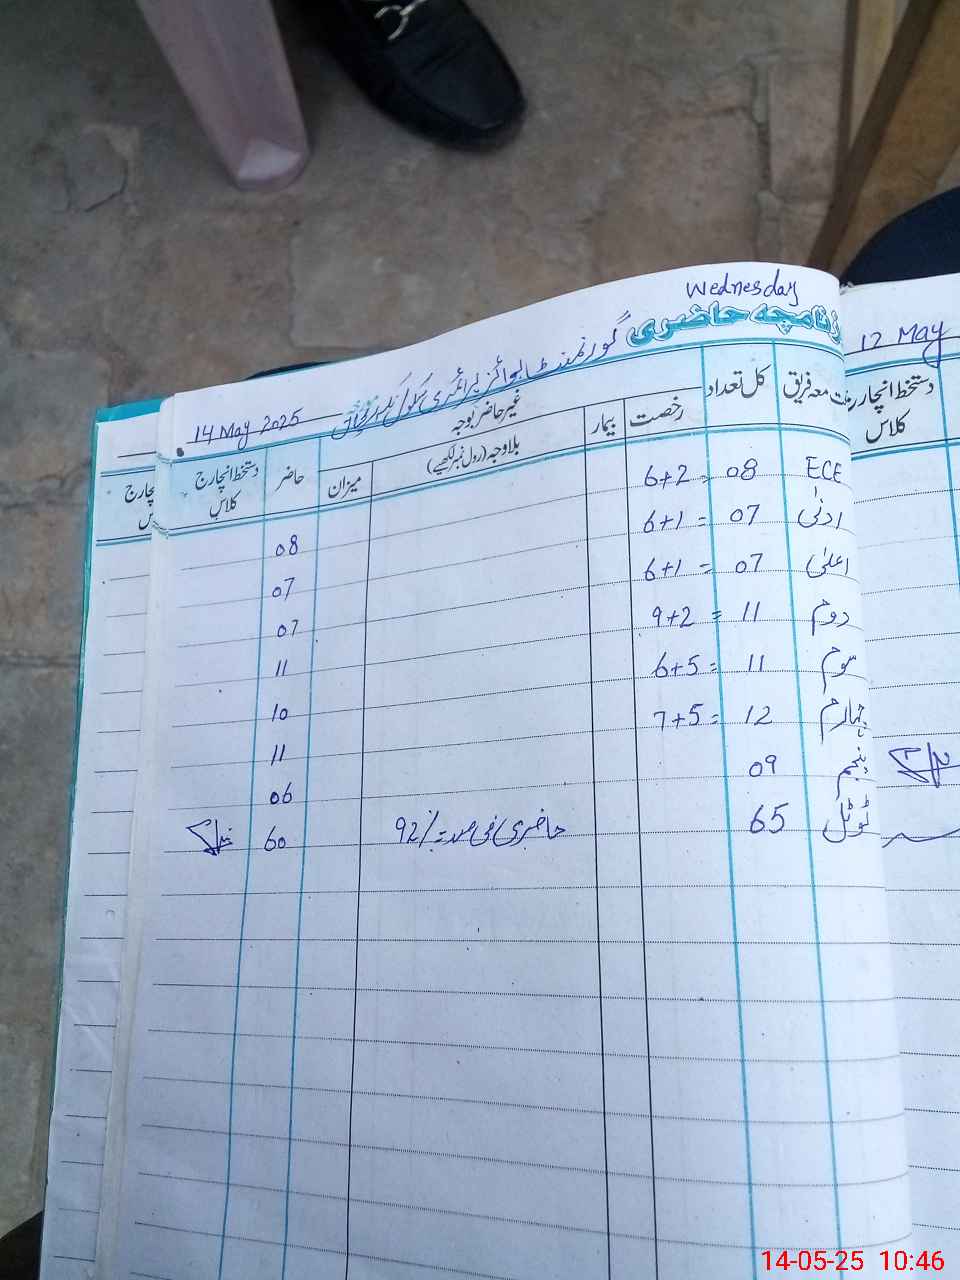 Wednesday
روزنامچہ حاضری گورنمنٹ بوائز پرائمری سکول
14 May 2025
12 May
جماعت معہ فریق کل تعداد رخصت بیمار غیر حاضر بوجہ حاضر دستخط انچارج کلاس
بلاوجہ (رول نمبر لکھیے) میزان
دستخط انچارج
کلاس
ECE 08 = 6+2 08
ادنیٰ 07 = 6+1 07
اعلیٰ 07 = 6+1 07
دوم 11 = 9+2 11
سوم 11 = 6+5 10
چہارم 12 = 7+5 11
پنجم 09 06
ٹوٹل 65 حاضری فی صد 92% 60
14-05-25 10:46